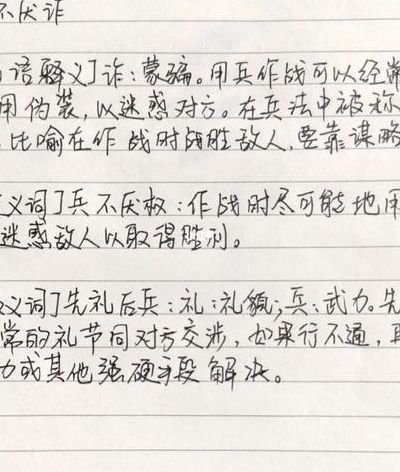 不厌诈
语释义]诈:蒙骗。用兵作战可以经常
用伪装,以迷惑对方。在兵法中被称
比喻在作战时战胜敌人,要靠谋略
义词]兵不厌权:作战时尽可能地用
迷惑敌人以取得胜利。
义词]先礼后兵:礼:礼貌;兵:武力。先
常的礼节同对方交涉,如果行不通,再
力或其他强硬手段解决。